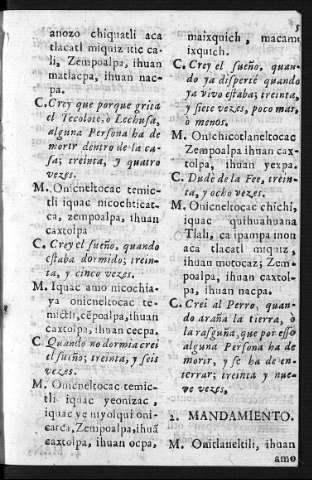 5
anozo chiquatli aca
tlacatl miquiz itic ca-
li, Zempoalpa, ihuan
matlacpa, ihuan nac-
pa.
C. Crey que porque grita
el Tecolote, ò Lechusa,
alguna Persona ha de
morir dentro de la ca-
sa; treinta, y quatro
vezes.
M. Onicneltocac temic-
tli iquac nicochticat-
ca, zempoalpa, ihuan
caxtolpa
C. Crey el sueño, quando
estaba dormido; trein-
ta, y cinco vezes.
M. Iquac amo nicochia-
ya onicneltocac te-
mictli, cẽpoalpa, ihuan
caxtolpa, ihuan cecpa.
C Quando no dormia crei
el sueño; treinta, y seis
vezes.
M. Onicneltocac temic-
tli iquac yeonizac,
iquac ye niyolqui oni-
catca, Zempoalpa, ihuã
caxtolpa, ihuan ocpa,
maixquich, macamo
ixquich.
C. Crey el sueño, quan-
do ya disperté quando
ya vivo estaba; treinta,
y siete vezes, poco mas,
ò menos.
M. Onichicotlaneltocac
Zempoalpa ihuan cax-
tolpa, ihuan yexpa.
C. Dudè de la Fee, trein-
ta, y ocho vezes.
M. Onicneltocac chichi,
iquac quihuahuana
Tlali, ca ipampa inon
aca tlacatl miquiz,
ihuan motocaz; Zem-
poalpa, ihuan caxtol-
pa, ihuan nacpa.
C. Crei al Perro, quan-
do araña la tierra, ò
la rasguña, que por esso
alguna Persona ha de
morir, y se ha de en-
terrar; treinta y nue-
ve vezes,
2. MANDAMIENTO.
M. Onitlaneltili, ihuan
amo